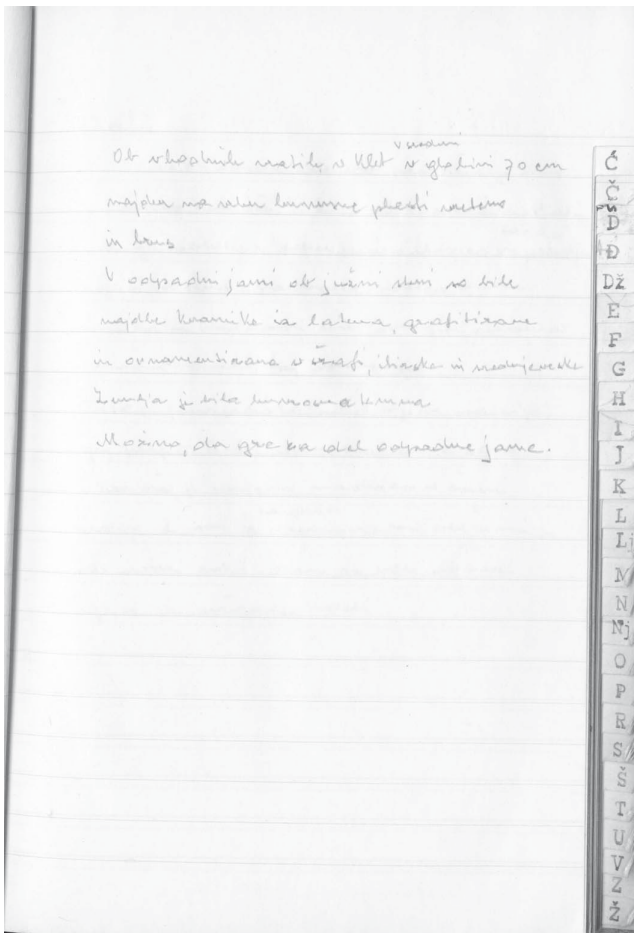 v sredini
Ob vhodnih vratih v klet v globini 70 cm
najden na robu kurivne plasti vretenc
in brus
V odpadni jami ob južni steni so bile
najdbe keramike iz latena, grafitirane
in ornamentirana, in srednjeveške
Zemlja je bila temna
Možno, da gre za del odpadne jame.
Ć
Č
D
Đ
Dž
E
F
G
H
I
J
K
L
Lj
M
N
Nj
O
P
R
S
Š
T
U
V
Z
Ž